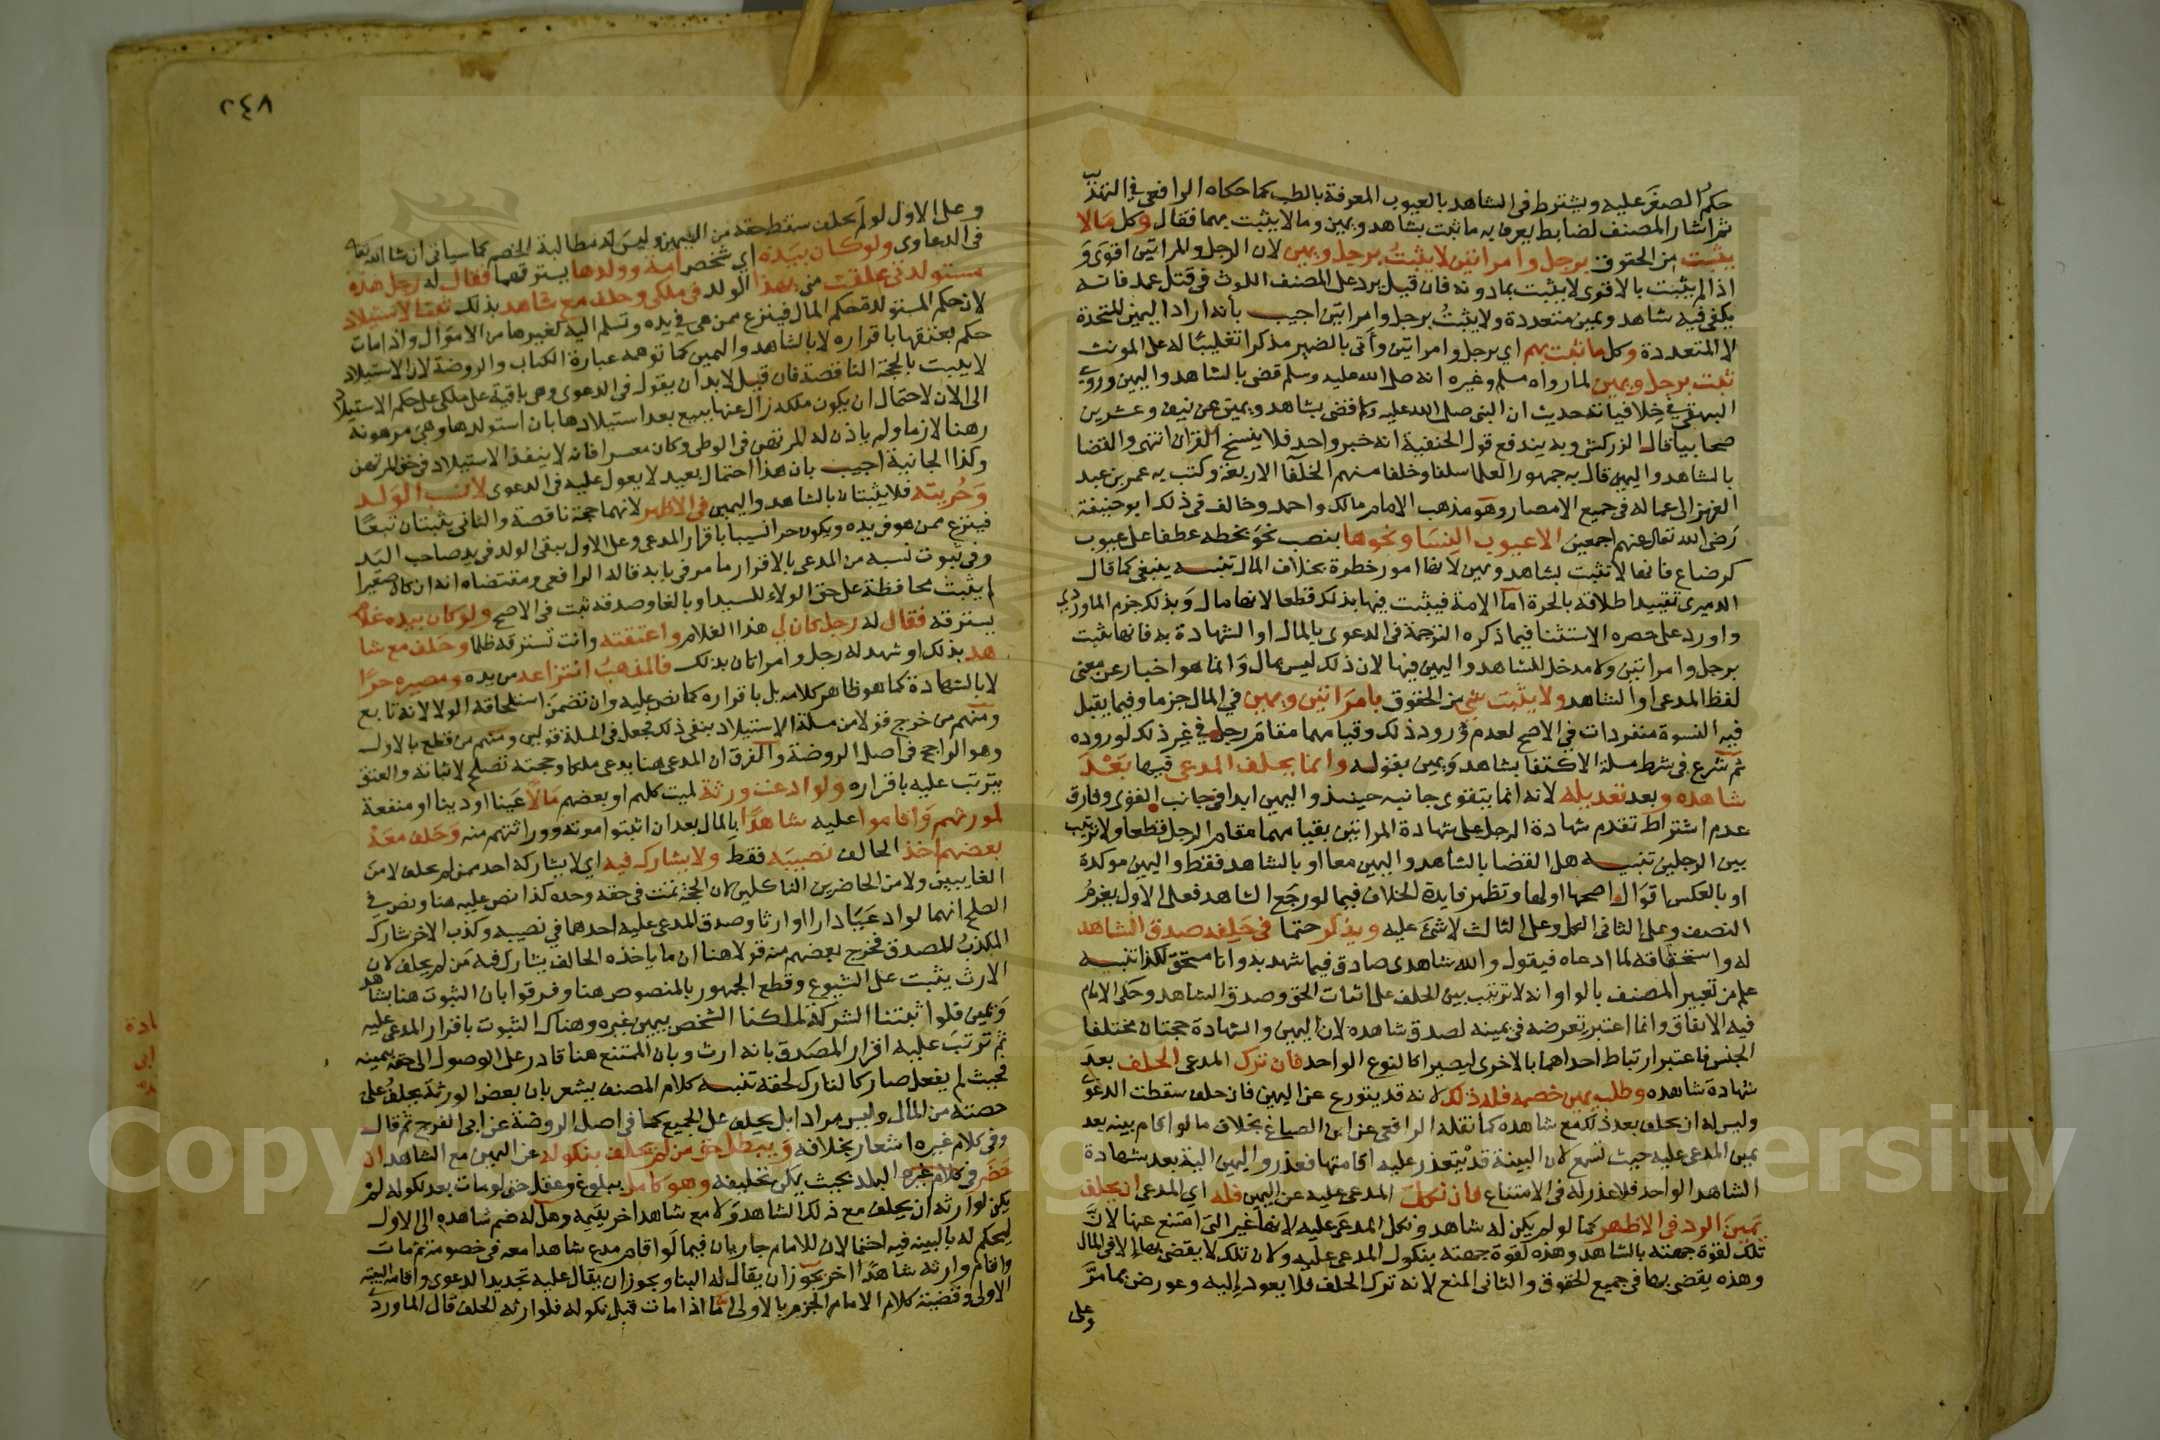 حكم الصغر عليه ويشترط فى الشاهد بالعيوب المعرفة بالطب كما حكاه الرافعى فى التهذيب
ثم اشار المصنف لضابط يعرف به ما ثبت بشاهد ويمين وما لا يثبت بهما فقال وكل مالا
يثبت من الحقوق برجل وامراتين لا يثبت برجل ويمين لان الرجل والمراتين اقوى و
اذا لم يثبت بالاقوى لا يثبت بما دونه فان قيل يرد على المصنف اللوث فى قتل عمد فانه
يكفى فيه شاهد ويمين متعددة ولا يثبت برجل وامراتين اجيب بأنه اراد اليمين المتحدة
لا المتعددة وكل ما ثبت بهم اي برجل وامراتين وأتى بالضمير مذكرا تغليبا له على المونث
ثبت برجل ويمين لما رواه مسلم وغيره انه صلى الله عليه وسلم قضى بالشاهد واليمين وروى
البيهقى فى خلافياته حديث ان النبى صلى الله عليه وسلم قضى بشاهد ويمين عن نيف وعشرين
صحابيا قال الزركشى وبه يندفع قول الحنفية انه خبر واحد فلا ينسخ القران انتهى والقضا
بالشاهد واليمين قال به جمهور العلما سلفا وخلفا منهم الخلفا الاربعة وكتب به عمر بن عبد
العزيز الى عماله فى جميع الامصار وهو مذهب الامام مالك واحمد وخالف فى ذلك ابو حنيفة
رضى الله تعالى عنهم اجمعين الا عيوب النسا ونحوها بنصب نحو بخطه عطفا على عيوب
كرضاع فانها لا تثبت بشاهد ويمين لانها امور خطرة بخلاف المال تنبيه ينبغى كما قال
الدميرى تقييد اطلاقه بالحرة اما الامة فيثبت فيها بذلك قطعا لانها مال وبذلك جزم الماوردي
واورد على حصره الاستثنا فيما ذكره الترجمة فى الدعوى بالمال او الشهادة به فانها تثبت
برجل وامراتين ولا مدخل للشاهد واليمين فيها لان ذلك ليس بمال وانما هو اخبار عن معنى
لفظ المدعى او الشاهد ولا يثبت شى من الحقوق بامراتين ويمين في المال جزما وفيما يقبل
فيه النسوة منفردات فى الاصح لعدم ورود ذلك وقيامهما مقام رجل فى غير ذلك لوروده
ثم شرع فى شرط مسلة الاكتفا بشاهد ويمين بقوله وانما يحلف المدعى فيها بعد
شاهده وبعد تعديله لانه انما يتقوى جانبه حينيذ واليمين ابدا فى جانب القوى وفارق
عدم اشتراط تقدم شهادة الرجل على شهادة المراتين بقيامهما مقام الرجل قطعا ولا ترتيب
بين الرجلين تنبيه هل القضا بالشاهد واليمين معا او بالشاهد فقط واليمين موكدة
او بالعكس اقوال اصحها اولها وتظهر فايدة الخلاف فيما لو رجع الشاهد فعلى الاول يغرم
النصف وعلى الثانى الكل وعلى الثالث لا شئ عليه ويذكر حتما فى حلفه صدق الشاهد
له واستحقاقه لما ادعاه فيقول والله شاهدى صادق فيما شهد به وانا مستحق لكذا تنبيه
علم من تعبير المصنف بالواو انه لا ترتيب بين الحلف على اثبات الحق وصدق الشاهد وحكى الامام
فيه الاتفاق وانما اعتبر تعرضه فى يمينه لصدق شاهده لان اليمين والشهادة حجتان مختلفتا
الجنس فاعتبر ارتباط احداهما بالاخرى ليصيرا كالنوع الواحد فان ترك المدعى الحلف بعد
شهادة شاهده وطلب يمين خصمه فله ذلك لانه قد يتورع عن اليمين فان حلف سقطت الدعوى
وليس له ان يحلف بعد ذلك مع شاهده كما نقله الرافعى عن ابن الصباغ بخلاف ما لو اقام بينه بعد
يمين المدعى عليه حيث تسمع لان البينة قد يتعذر عليه اقامتها فعذر واليمين اليه بعد شهادة
الشاهد الواحد فلا عذر له فى الامتناع فان نكل المدعى عليه عن اليمين فله اي المدعى ان يحلف
يمين الرد فى الاظهر كما لو لم يكن له شاهد ونكل المدعى عليه لانها غير التى امتنع عنها لان
تلك لقوة جهته بالشاهد وهذه لقوة جهته بنكول المدعى عليه ولان تلك لا يقضى بها الا فى المال
وهذه يقضى بها فى جميع الحقوق والثانى المنع لانه ترك الحلف فلا يعود إليه وعورض بما مر
وعلى
٢٤٧
وعلى الاول لو لم يحلف سقط حقه من اليمين وليس له مطالبة الخصم كما سياتى ان شا الله تعالى
فى الدعاوى ولو كان بيده اي شخص امة وولدها يسترقهما فقال له رجل هذه
مستولدتى علقت منى بهذا الولد فى ملكى وحلف مع شاهد بذلك ثبت الاستيلاد
لان حكم المستولدة حكم المال فينزع ممن هى فى يده وتسلم اليه كغيرها من الاموال واذا مات
حكم بعتقها باقراره لا بالشاهد واليمين كما توهمه عبارة الكتاب والروضة لان الاستيلاد
لا يثبت بالحجة الناقصة فان قيل لابد ان يقول فى الدعوى وهى باقية على ملكى على حكم الاستيلاد
الى الان لاحتمال ان يكون ملكه زال عنها ببيع بعد استيلادها بان استولدها وهى مرهونة
رهنا لازما ولم ياذن له المرتهن فى الوطى وكان معسرا فانه لا ينفذ الاستيلاد فى حق المرتهن
وكذا الجانية اجيب بان هذا احتمال بعيد لا يعول عليه فى الدعوى لا نسب الولد
وحريته فلا يثبتان بالشاهد واليمين فى الاظهر لانهما حجة ناقصة والثانى يثبتان تبعا
فينزع ممن هو فى يده ويكون حرا نسيبا باقرار المدعى وعلى الاول يبقى الولد فى يد صاحب اليد
وفى ثبوت نسبه من المدعى بالاقرار ما مر فى بابه قاله الرافعى ومقتضاه انه ان كان صغيرا
لم يثبت محافظة على حق الولاء للسيد او بالغا وصدقه ثبت فى الاصح ولو كان بيده غلام
يسترقه فقال له رجل كان لى هذا الغلام واعتقته وانت تسترقه ظلما وحلف مع شا
هد بذلك او شهد له رجل وامراتان بذلك فالمذهب انتزاعه من يده ومصيره حرا
لا بالشهادة كما هو ظاهر كلامه بل باقراره كما نص عليه وان تضمن استحقاقه الولا لانه تابع
ومنهم من خرج قولا من مسلة الاستيلاد بنفى ذلك فجعل فى المسلة قولين ومنهم من قطع بالاول
وهو الراجح فى اصل الروضة والفرق ان المدعى هنا يدعى ملكا وحجته تصلح لاثباته والعتق
يترتب عليه باقراره ولو ادعت ورثة لميت كلهم او بعضهم مالا عينا او دينا او منفعة
لمورثهم واقاموا عليه شاهدا بالمال بعد ان اثبتوا موته ووراثتهم منه وحلف معه
بعضهم اخذ الحالف نصيبه فقط ولا يشارك فيه اي لا يشاركه احد ممن لم يحلف لا من
الغايبين ولا من الحاضرين الناكلين لان الحجة تمت فى حقه وحده كذا نص عليه هنا ونص فى
الصلح انهما لو ادعيا دارا اوارثا وصدق المدعى عليه احدهما فى نصيبه وكذب الاخر شارك
المكذب المصدق فخرج بعضهم منه قولا هنا ان ما ياخذه الحالف يشارك فيه من لم يحلف لان
الارث يثبت على الشيوع وقطع الجمهور بالمنصوص هنا وفرقوا بان الثبوت هنا بشاهد
ويمين فلو اثبتنا الشركة لملكنا الشخص بيمين غيره وهناك الثبوت باقرار المدعى عليه
ثم ترتب عليه اقرار المصدق بانه ارث وبان الممتنع هنا قادر على الوصول الى حقه بيمينه
فحيث لم يفعل صار كالتارك لحقه تنبيه كلام المصنف يشعر بان بعض الورثة يحلف على
حصته من المال وليس مرادا بل يحلف على الجميع كما فى اصل الروضة عن ابى الفرج ثم قال
وفى كلام غيره اشعار بخلافه ويبطل حق من لم يحلف بنكوله عن اليمين مع الشاهد ان
حضر فى كلام غيره البلد بحيث يمكن تحليفه وهو كامل ببلوغ وعقل حتى لو مات بعد نكوله لم
يكن لوارثه ان يحلف مع ذلك الشاهد ولا مع شاهد اخر يقيمه وهل له ضم شاهده الى الاول
ليحكم له بالبينه فيه احتمالان للامام جاريان فيما لو اقام مدع شاهدا معه فى خصومة ثم مات
واقام وارثه شاهدا اخر يجوز ان يقال له البنا ويجوز ان يقال عليه تجديد الدعوى واقامة البينة
الاولى وقضية كلام الامام الجزم بالاولى اما اذا مات قبل نكوله فلوارثه الحلف قال الماوردى
Copyright © King Saud University